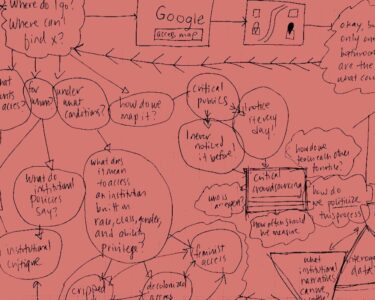 Where do I go?
Where can I
find x?
Google
access map
okay, b
only or
bathroom
are the
what cou
what
access?
for
whom?
under
what
conditions?
how do we
map it?
critical
publics
I notice
it every
day!
I never
noticed
it before!
how do we
teach each other
to notice?
critical
crowdsourcing
who is
an agent?
how do
we politicize
this process
how often should
we measure
What do
institutional
policies
say?
What does
it mean
to access
an institution
built on
race, class, gender,
and ability
privilege?
institutional
critique
feminist
access
cripped
decolonized
access
what
institutional
narratives
can we
leverage
data?